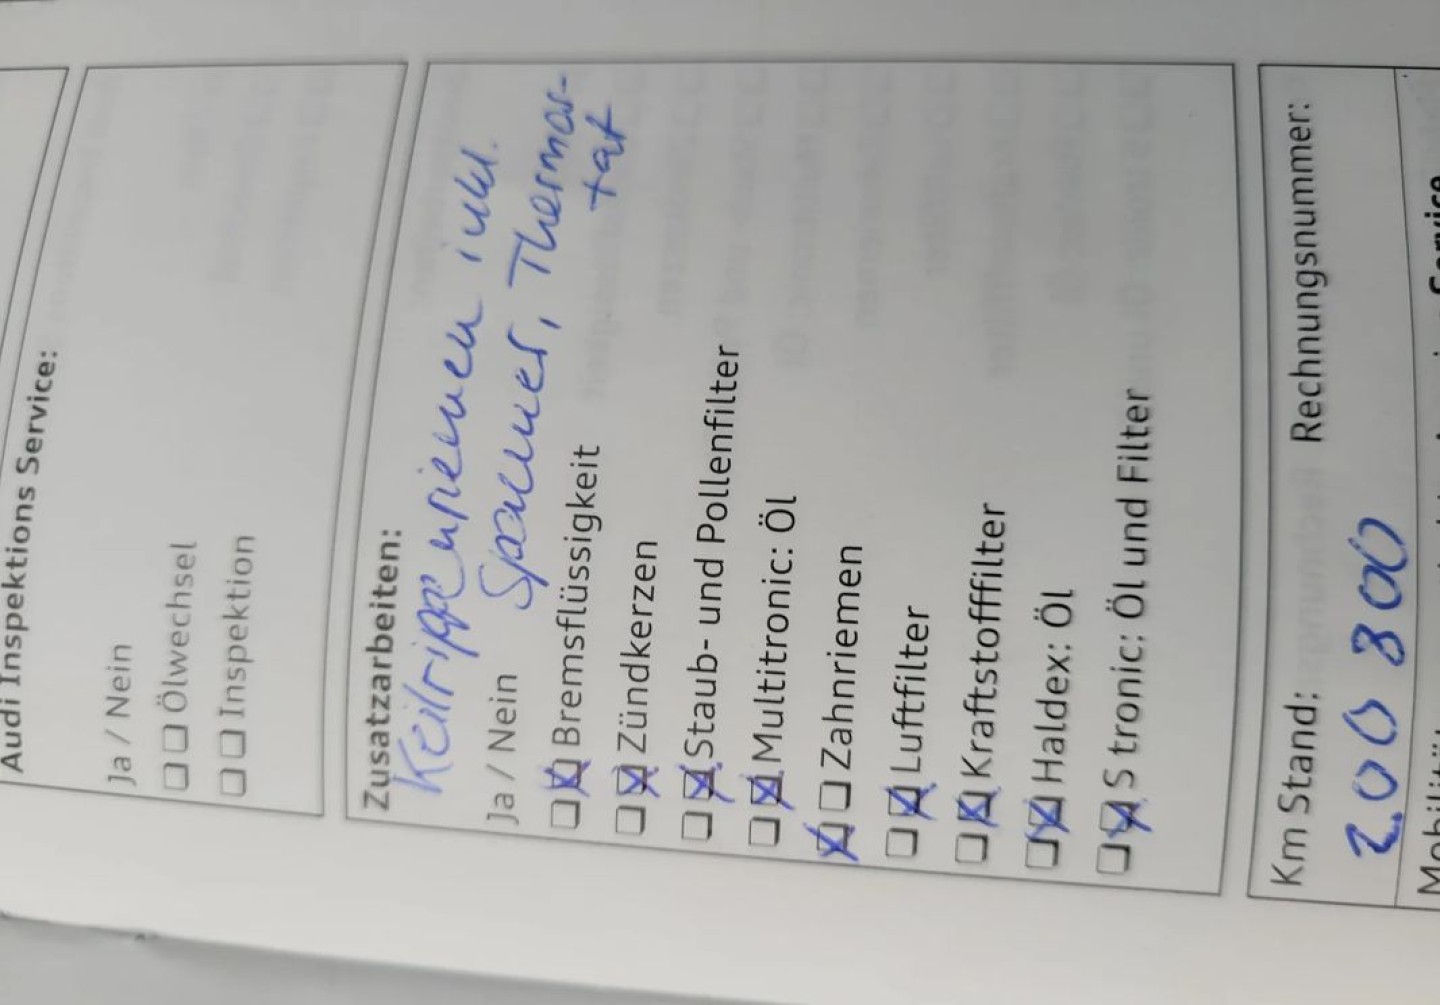 Audi Inspektions Service:
Ja / Nein
☐ ☐ Ölwechsel
☐ ☐ Inspektion
Zusatzarbeiten:
Keilrippenriemen inkl.
Spanner, Thermos-
tat
Ja / Nein
☐ ☒ Bremsflüssigkeit
☐ ☒ Zündkerzen
☐ ☒ Staub- und Pollenfilter
☐ ☒ Multitronic: Öl
☒ ☐ Zahnriemen
☐ ☒ Luftfilter
☐ ☒ Kraftstofffilter
☐ ☒ Haldex: Öl
☐ ☒ S tronic: Öl und Filter
Km Stand: Rechnungsnummer:
200 800
Service